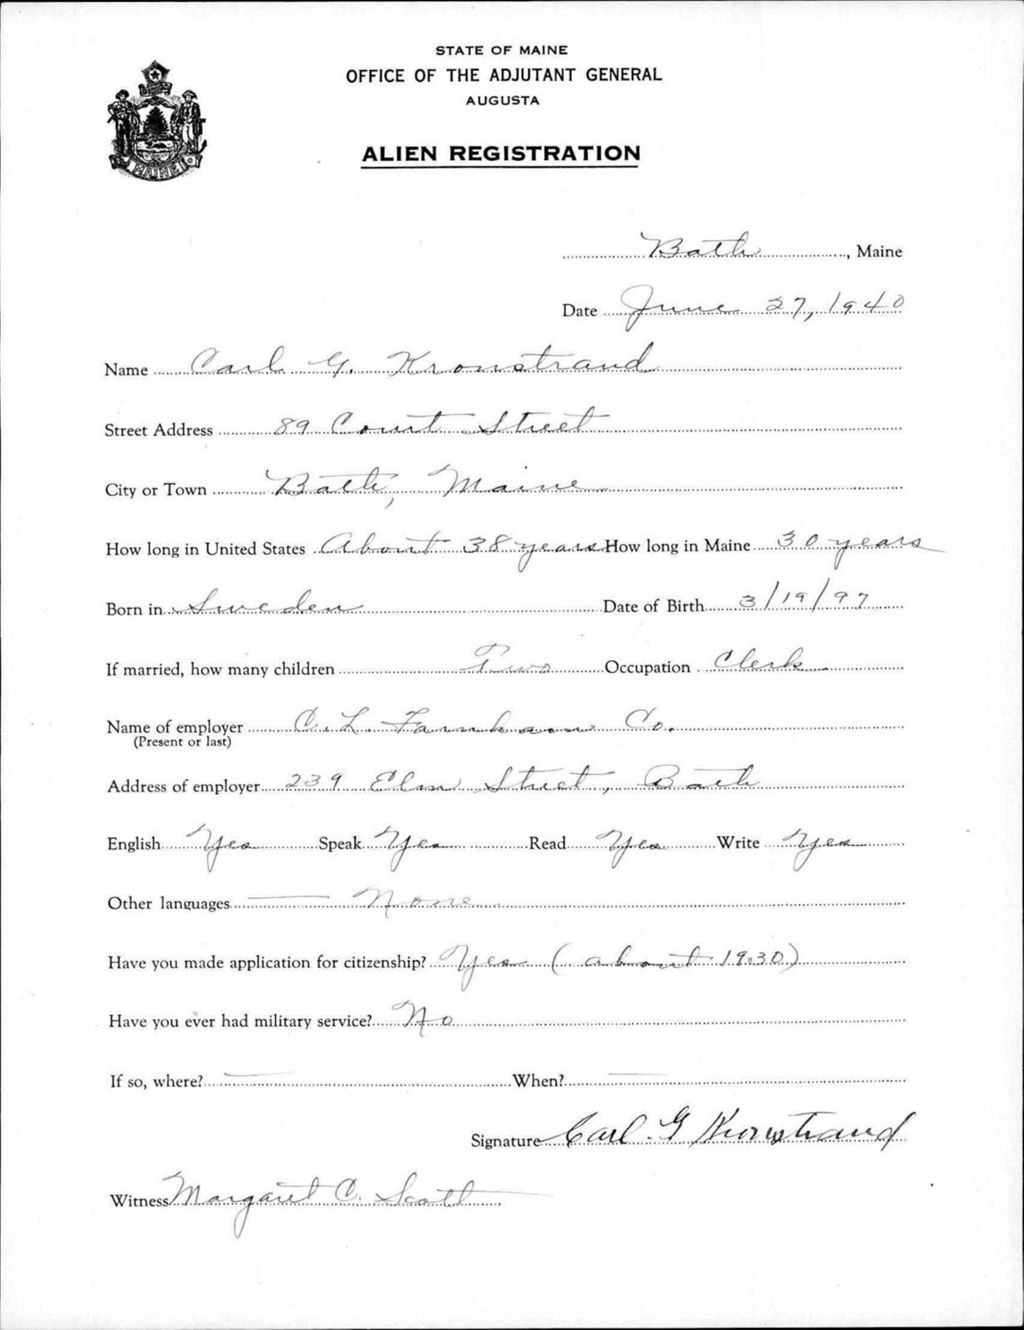 STATE OF MAINE
OFFICE OF THE ADJUTANT GENERAL
AUGUSTA
ALIEN REGISTRATION
MAINE
Bath, Maine
Date June 27, 1940
Name Carl G. Kronstrand
Street Address 89 Court Street
City or Town Bath, Maine
How long in United States About 38 years How long in Maine 30 years
Born in Sweden Date of Birth 3/19/97
If married, how many children Two Occupation Clerk
Name of employer C. L. Farnham Co.
(Present or last)
Address of employer 239 Elm Street, Bath
English Yes Speak Yes Read Yes Write Yes
Other languages — None
Have you made application for citizenship? Yes (about 1930)
Have you ever had military service? No
If so, where? — When? —
Signature Carl G Kronstrand
Witness Margaret C. Scott